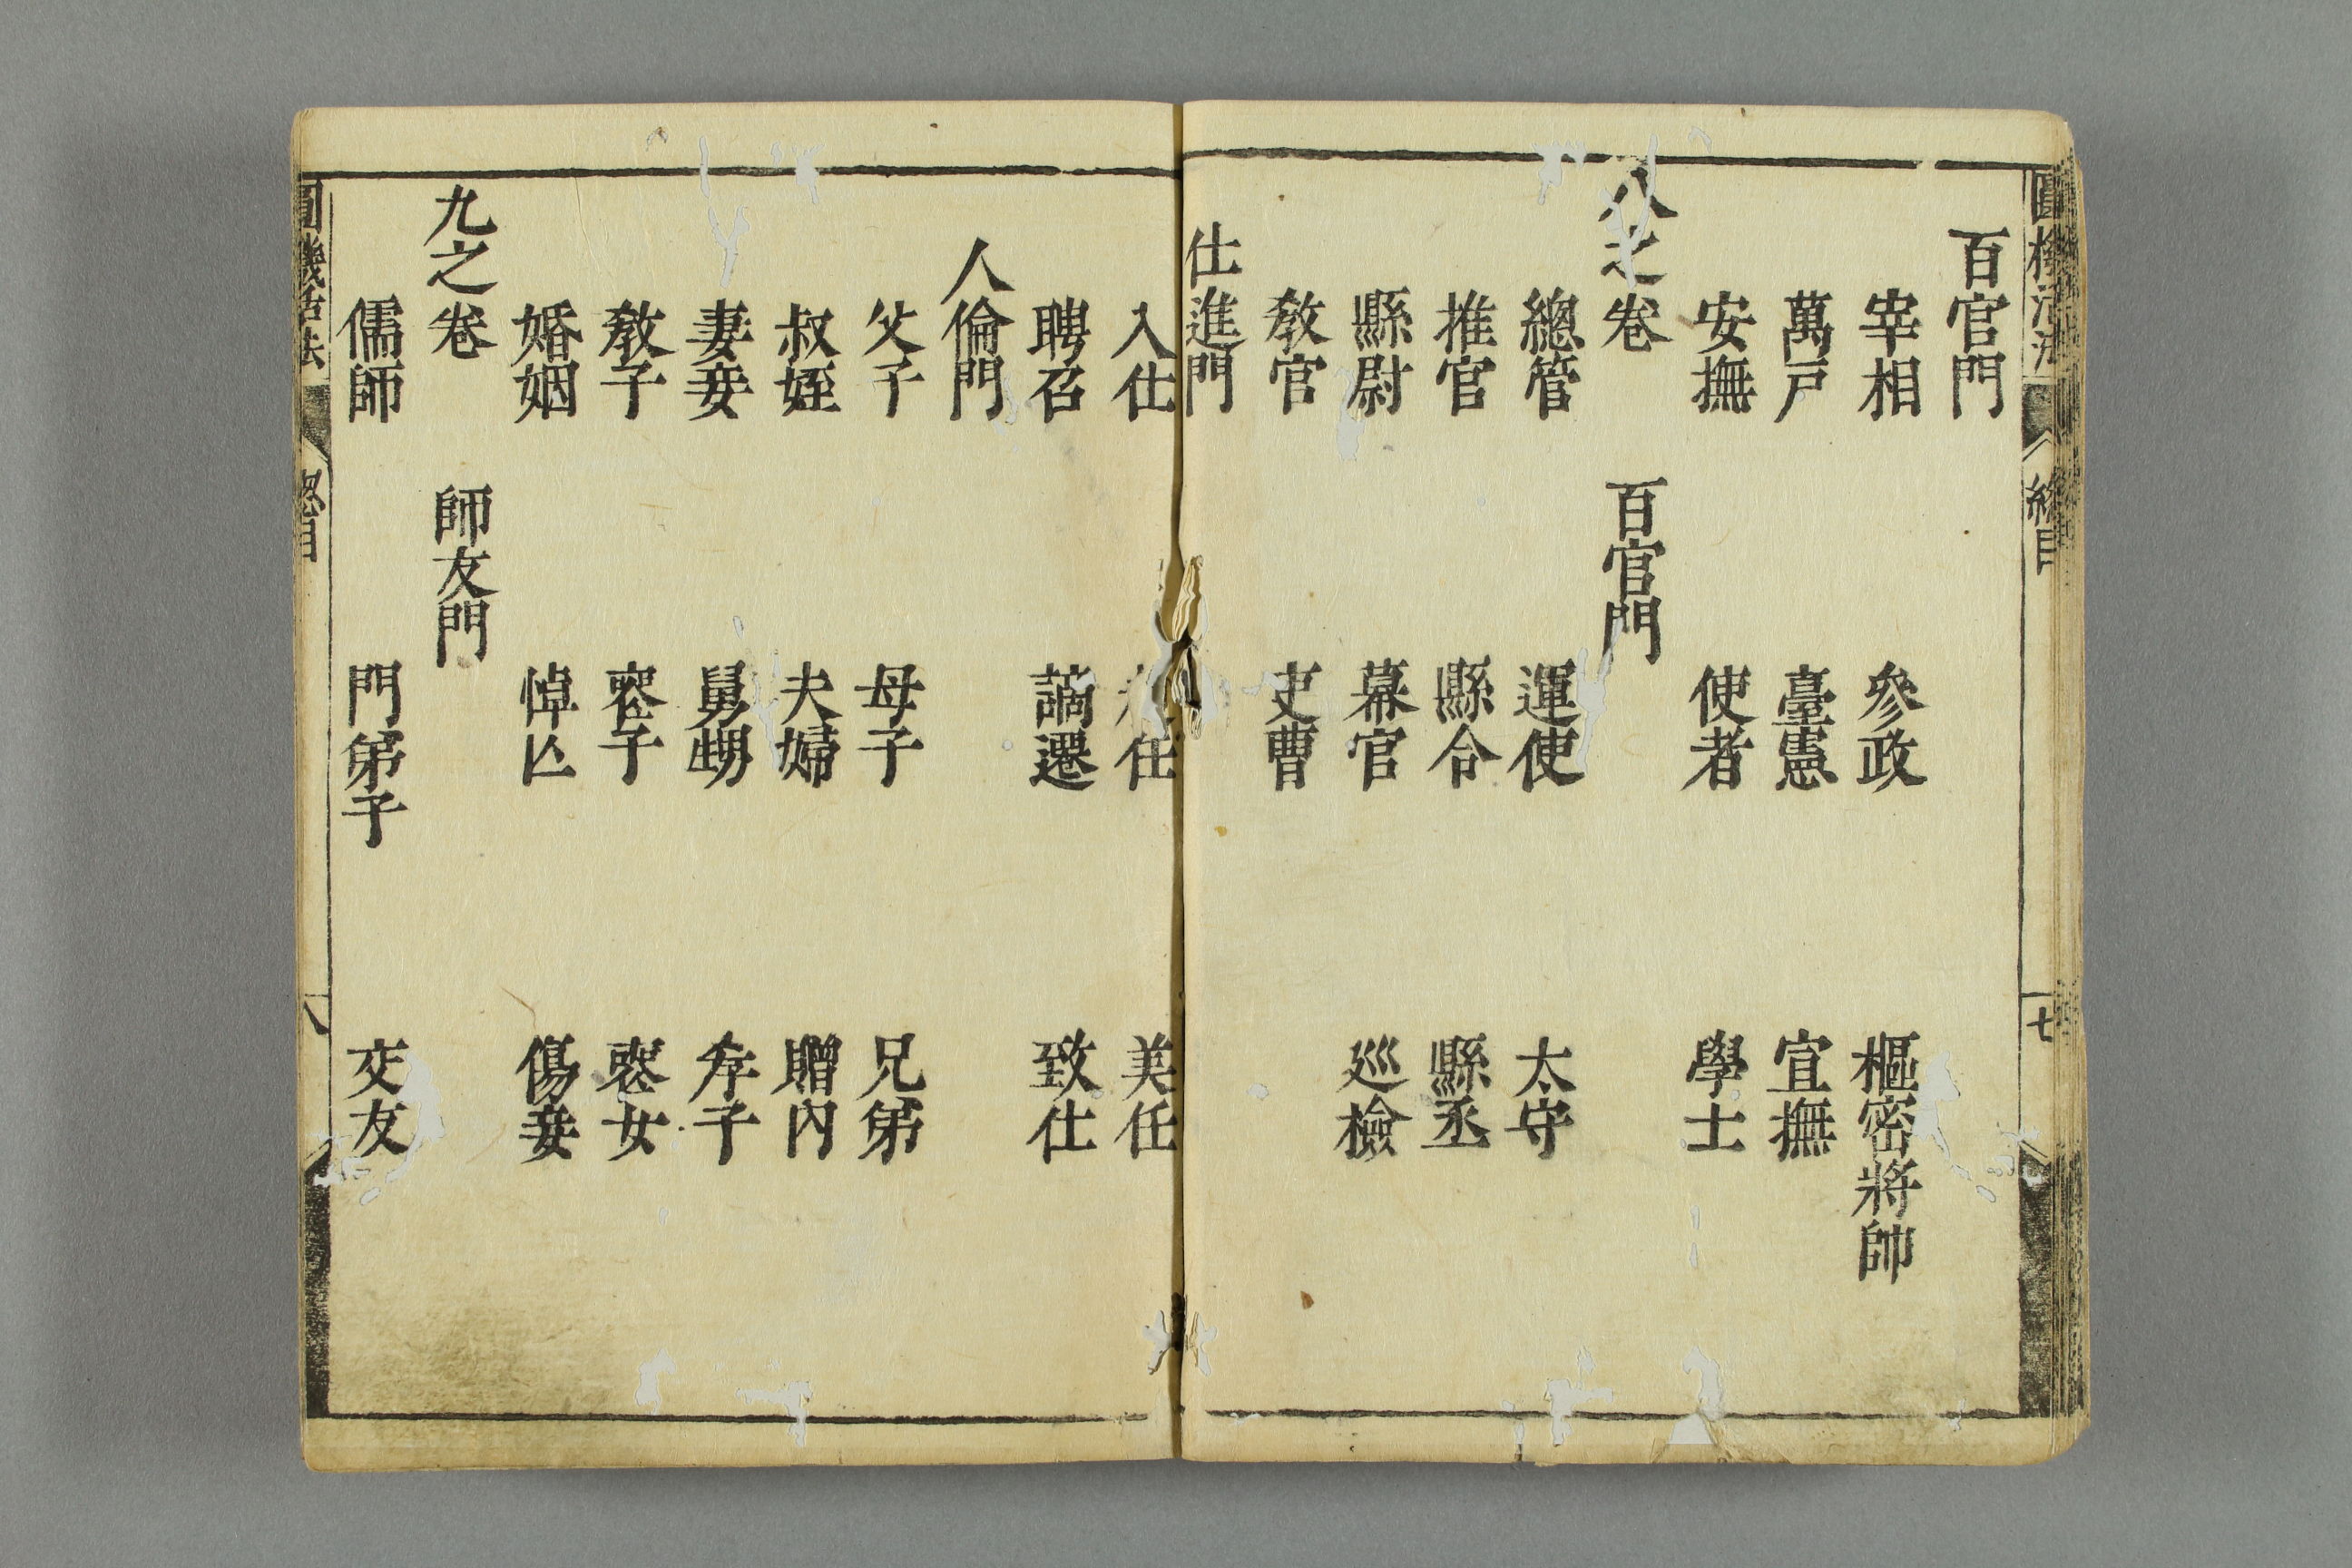 百官門
宰相 參政 樞密將帥
萬戸 臺憲 宜撫
安撫 使者 學士
八之卷 百官門
總管 運使 太守
推官 縣令 縣丞
縣尉 幕官 巡檢
敎官 吏曹
仕進門
入仕 任 美任
聘召 謫遷 致仕
人倫門
父子 母子 兄弟
叔姪 夫婦 贈内
妻妾 舅甥 孝子
敎子 喪子 喪女
婚姻 悼亾 傷妾
九之卷 師友門
儒師 門弟子 交友
圓機活法 總目 八
圓機活法 總目 七